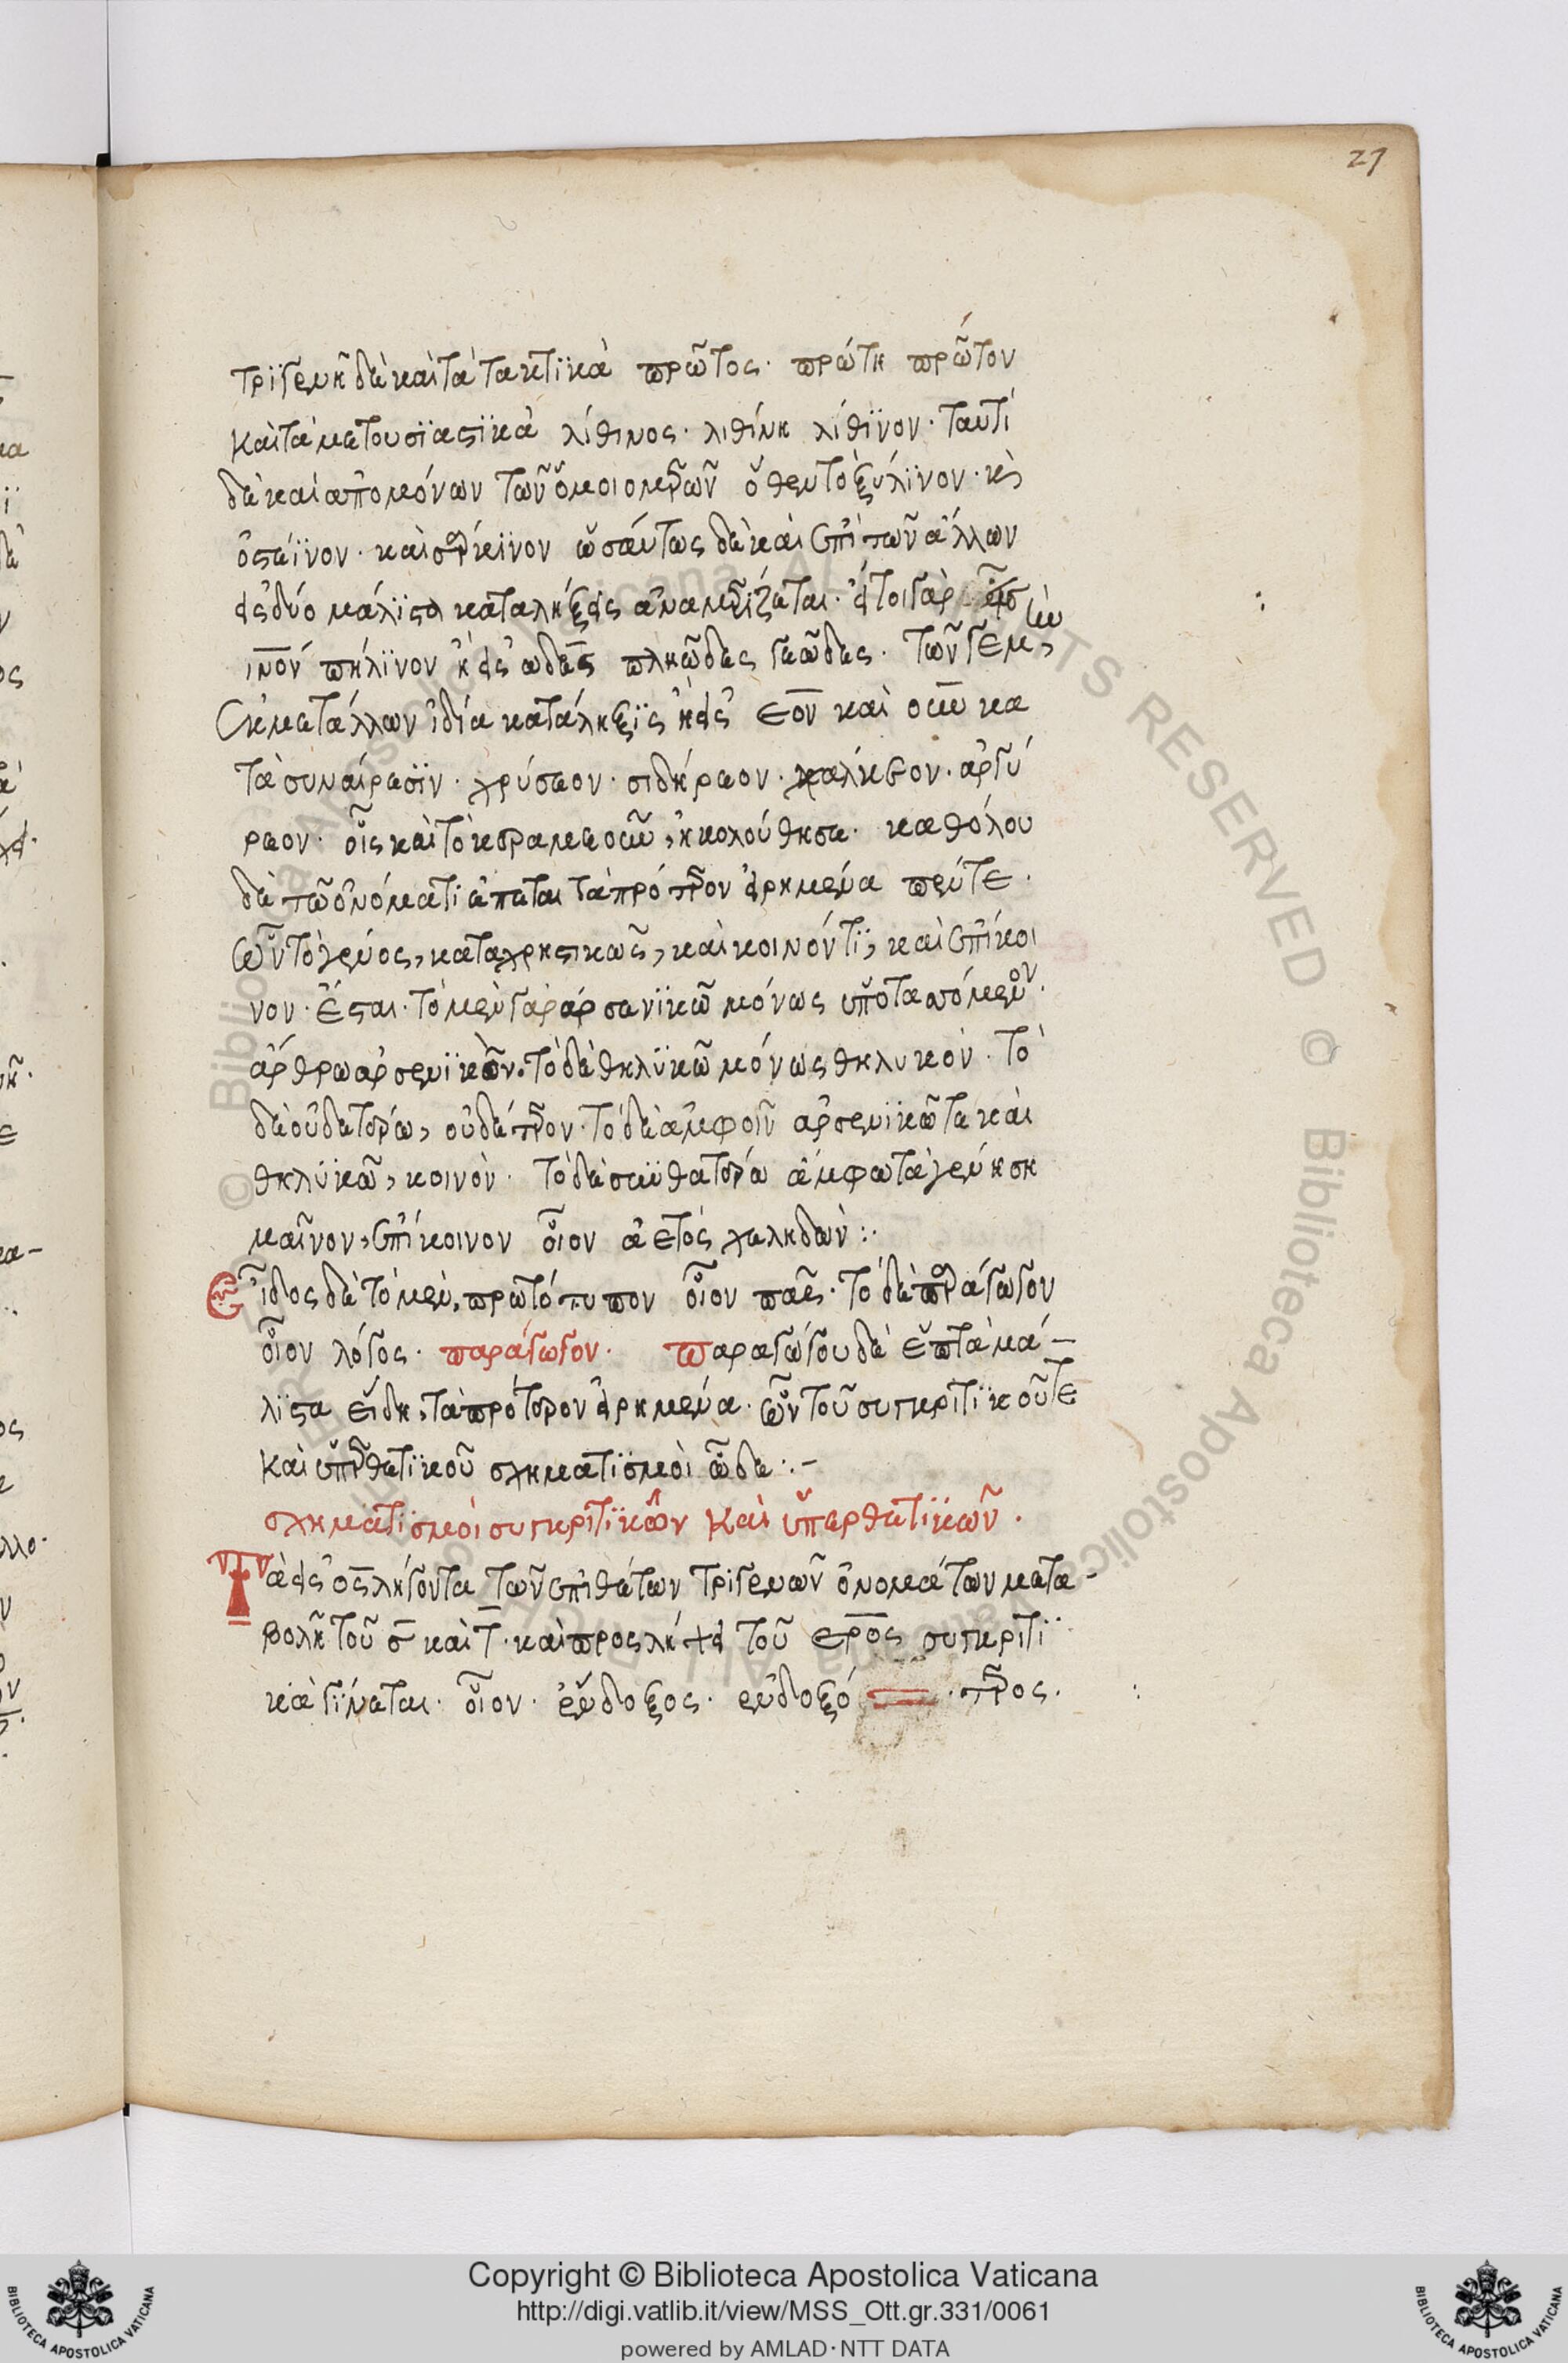 27
τριγενῆ δὲ καὶ τὰ τακτϊκὰ πρῶτος· πρώτη πρῶτον
καὶ τὰ μετουσϊαςϊκὰ λίθινος· λιθίνη λίθϊνον· ταυτὶ
δὲ καὶ ἀπομόνων τῶν ὁμοιομερῶν ὅθεν τὸ ξύλϊνον· κὶ
ὀςέϊνον· καὶ σαρκϊνον ὡσαύτως δὲ καὶ ἐπὶ τῶν ἄλλων
εἰς δύο μάλϊςα καταλήξεις ἀναμερίζεται· ἤτοι γὰρ εἰς
ινον πήλϊνον ἢ εἰς ωδες πληῶδες γεῶδες· τῶν γε μὴν
ἐκ μετάλλων ἰδία κατάληξϊς ἡ εἰς εον καὶ ουν κα
τὰ συναίρεσϊν· χρύσεον· σιδήρεον· χαλκεον· ἀργύ
ρεον· οἷς καὶ τὸ κεραμεοῦν, ἠκολούθησε· καθόλου
δὲ τῶ ὀνόματι ἕπεται τὰ πρότερον εἰρημένα πέντε·
ὧν τὸ γένος, καταχρηςικῶς, καὶ κοινόν τϊ, καὶ ἐπίκοι
νον· ἔςαι· τὸ μὲν γὰρ ἀρσενϊκῶ μόνως ὑποτασόμενον·
ἄρθρω ἀρσενϊκὸν· τὸ δὲ θηλϋκῶ μόνως θηλυκόν· τὸ
δὲ οὐδετέρω, οὐδέτερον· τὸ δὲ ἀμφοῖν ἀρσενϊκῶ τε καὶ
θηλϋκῶ, κοινὸν· τὸ δὲ σὺν θατέρω ἄμφω τὰ γένη ση
μαῖνον, ἐπίκοινον οἷον ἀετὸς χελιδὼν :·
Εἶδος δὲ τὸ μὲν, πρωτότυπον οἷον παῖς· τὸ δὲ παράγωγον
οἷον λόγος· παράγωγον· παραγώγου δὲ ἑπτὰ μά-
λϊςα εἴδη, τὰ πρότερον εἰρημένα· ὧν τοῦ συγκριτϊκοῦ τε
καὶ ὑπερθετϊκοῦ σχηματϊσμοὶ ὧδε :-
σχηματϊσμοὶ συγκριτϊκῶν καὶ ὑπερθετϊκῶν·
Τὰ εἰς ος λήγοντα τῶν ἐπιθέτων τριγενῶν ὀνομάτων μετα-
βολῆ τοῦ σ καὶ τ· καὶ προςλήψει τοῦ ερος συγκριτϊ
κὰ γίνεται· οἷον· εὔδοξος· εὐδοξό · τερος·
Copyright © Biblioteca Apostolica Vaticana
http://digi.vatlib.it/view/MSS_Ott.gr.331/0061
powered by AMLAD·NTT DATA